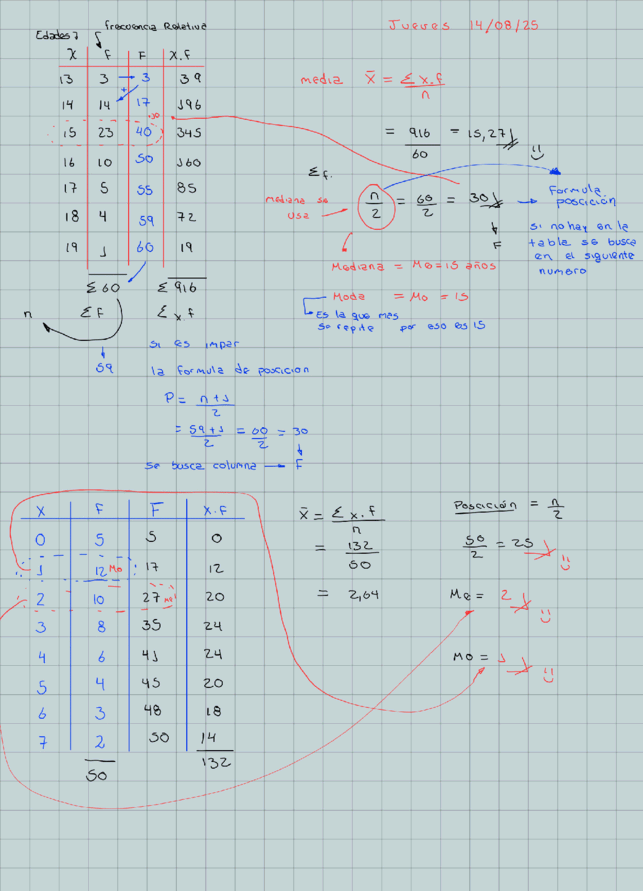 Jueves 14/08/25
frecuencia Relativa
Edades7
X f F X.f
13 3 3 39
14 14 17 196
15 23 40 345
16 10 50 160
17 5 55 85
18 4 59 72
19 1 60 19
Σ 60 Σ 916
n Σf Σx.f
+
media X̄ = Σx.f / n
= 916 / 60 = 15,27
Σf.
Mediana se usa
n/2 = 60/2 = 30
F
Formula posición
si no hay en la
table se busca
en el siguiente
numero
Mediana = Me = 15 años
Moda = Mo = 15
Es la que mas
se repite por eso es 15
si es impar
59
la formula de posición
P = n+1 / 2
= 59+1 / 2 = 60/2 = 30
se busca columna F
X F F X.F
0 5 5 0
1 12 Mo 17 12
2 10 27 Me 20
3 8 35 24
4 6 41 24
5 4 45 20
6 3 48 18
7 2 50 14
50 132
X̄ = Σx.f / n
= 132 / 50
= 2,64
Posición = n/2
50/2 = 25
Me = 2
Mo = 1